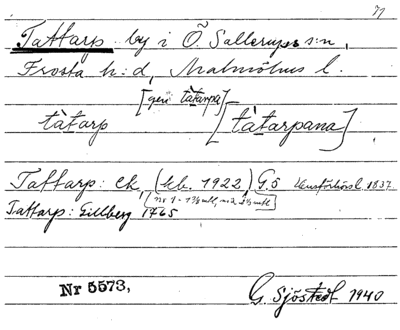 Tattarp by i Ö. Sallerups s:n,
Frosta h:d, Malmöhus l.
[gen tàtarpa]
tàtarp [tàtarpana]
Tattarp: ek, (kb. 1922) G.5 1837
[nr 1 - 1⅜ mtl, nr 2
Tattarp: Gillberg 1765
Nr 5573,
G. Sjöstedt 1940